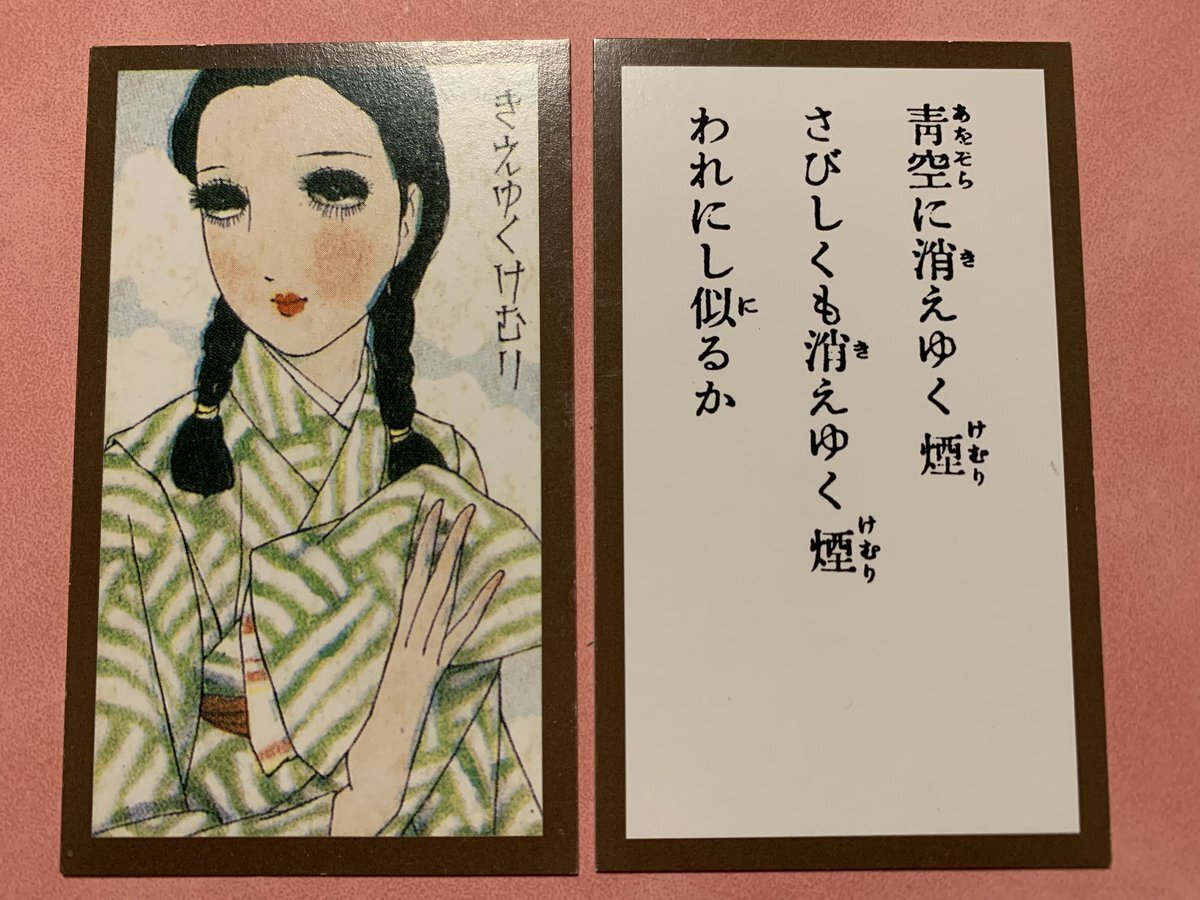 きえゆくけむり
あをぞら き けむり
青空に消えゆく煙
き けむり
さびしくも消えゆく煙
に
われにし似るか